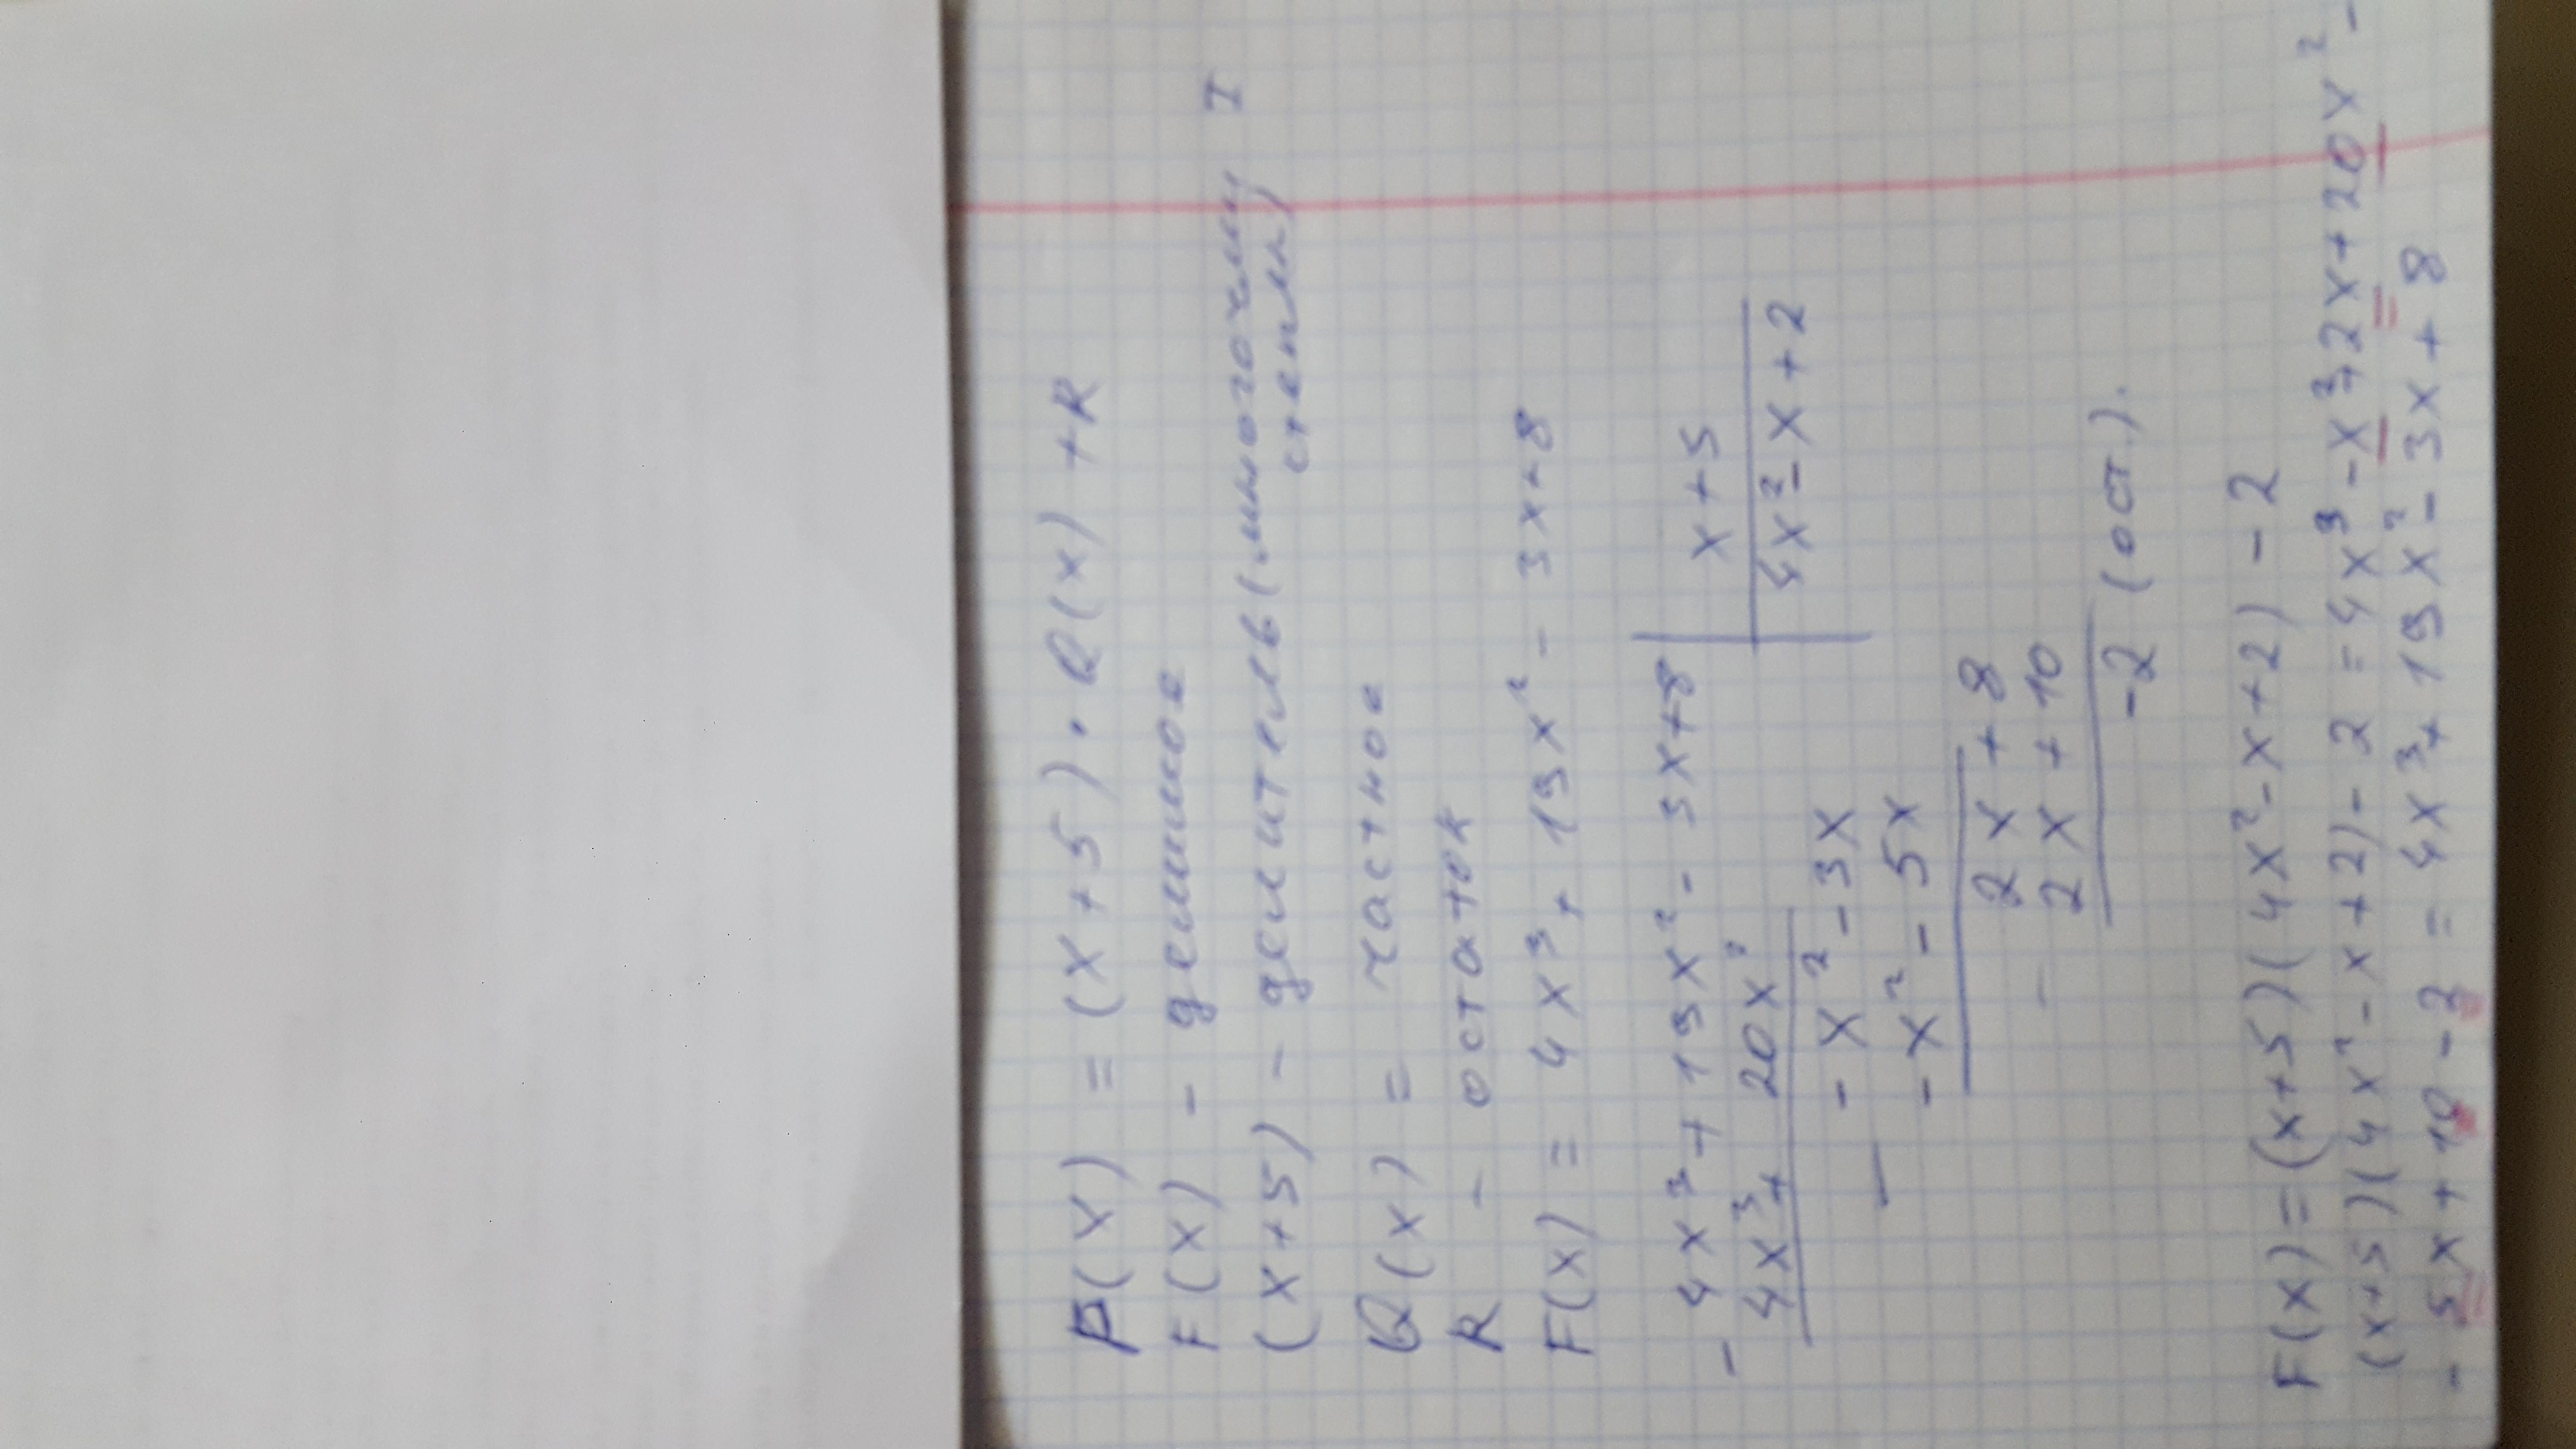 F(x) = (x+5) · Q(x) + R
F(x) - делимое
(x+5) - делитель (многочлен I
степени)
Q(x) = частное
R - остаток
F(x) = 4x³ + 19x² - 3x + 8
- 4x³ + 19x² - 3x + 8 | x + 5
4x³ + 20x² | 4x² - x + 2
- x² - 3x
- - x² - 5x
2x + 8
- 2x + 10
-2 (ост).
F(x) = (x+5)(4x² - x + 2) - 2
(x+5)(4x² - x + 2) - 2 = 4x³ - x² + 2x + 20x² -
- 5x + 10 - 2 = 4x³ + 19x² - 3x + 8